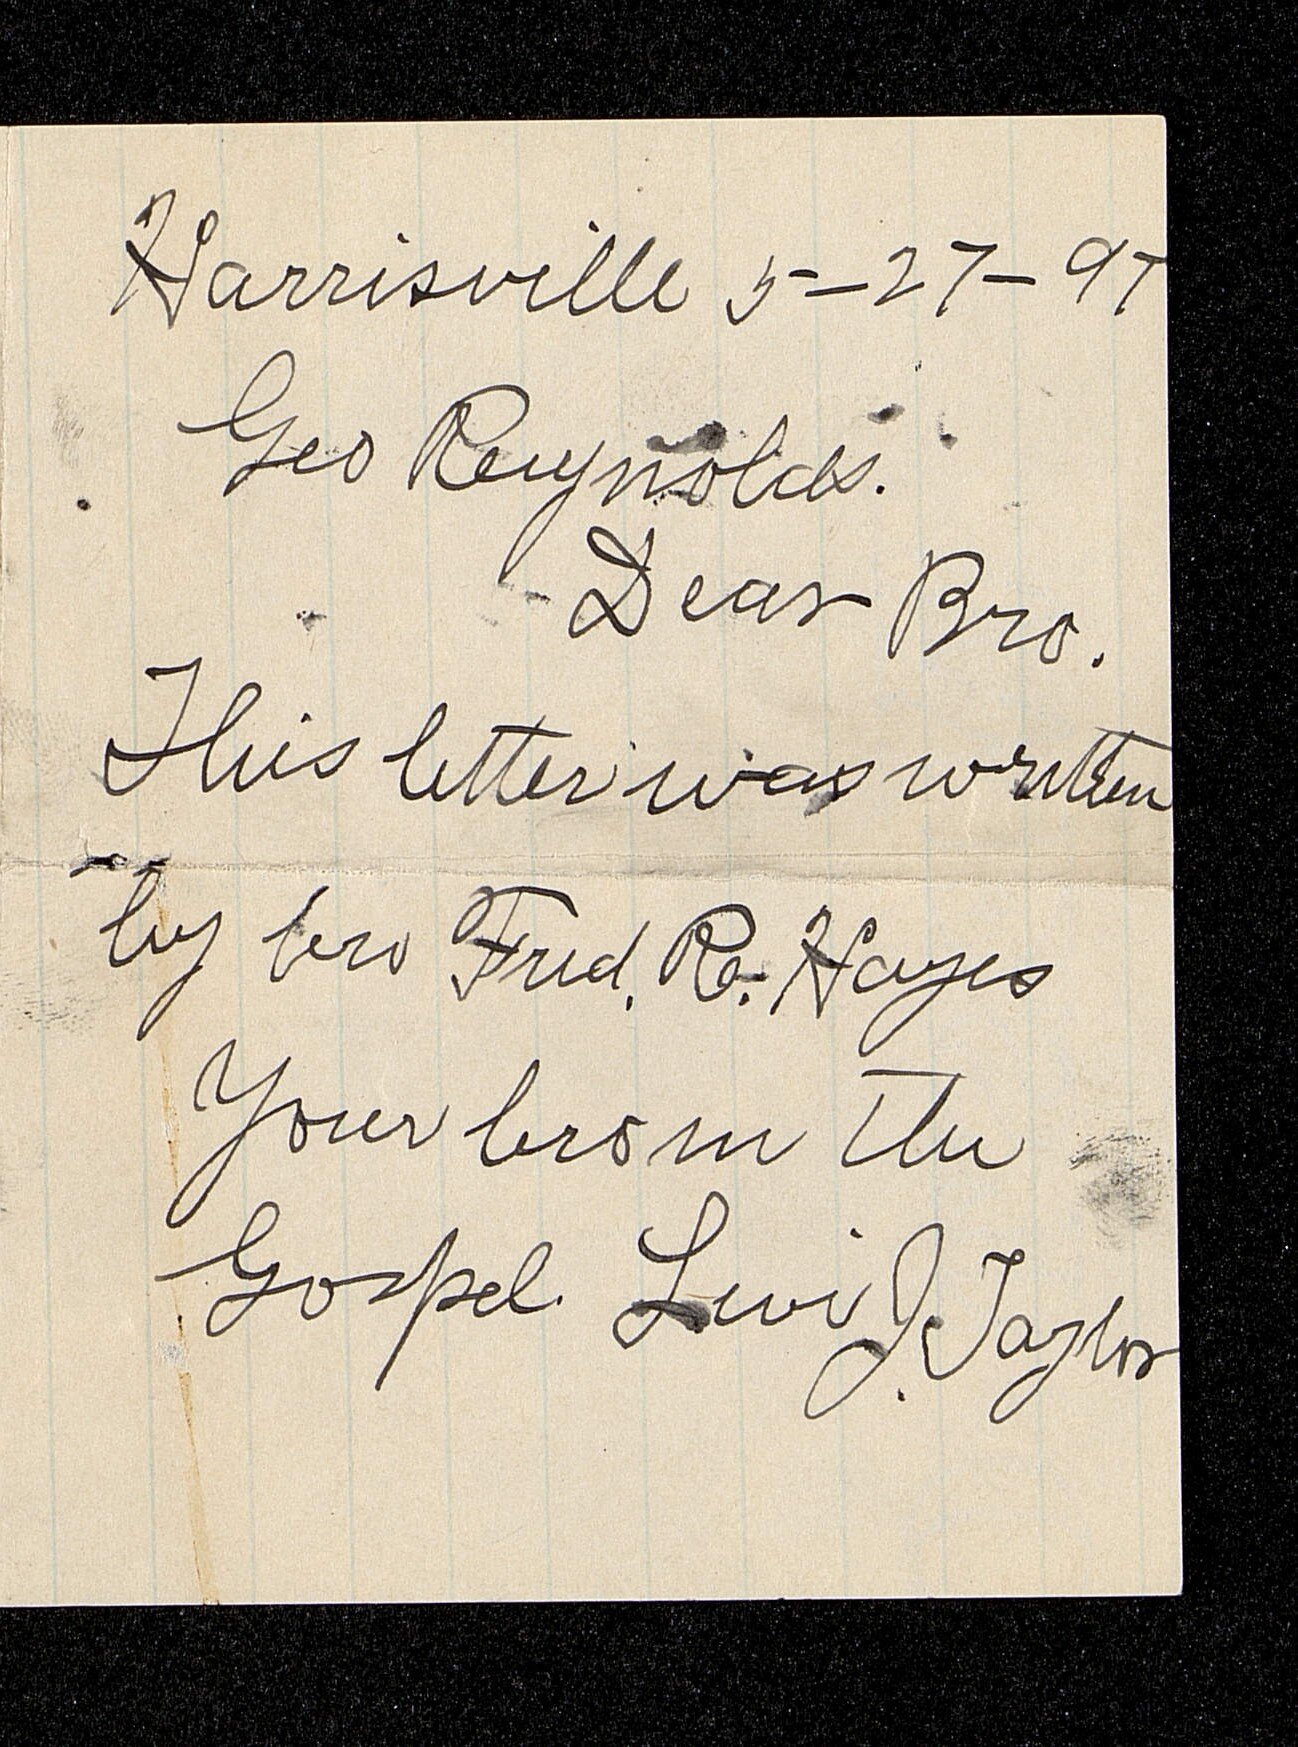 Harrisville 5-27-97
Geo Reynolds.
Dear Bro.
This letter was written
by bro Fred. R. Hayes
Your bro in the
Gospel. Levi J. Taylor